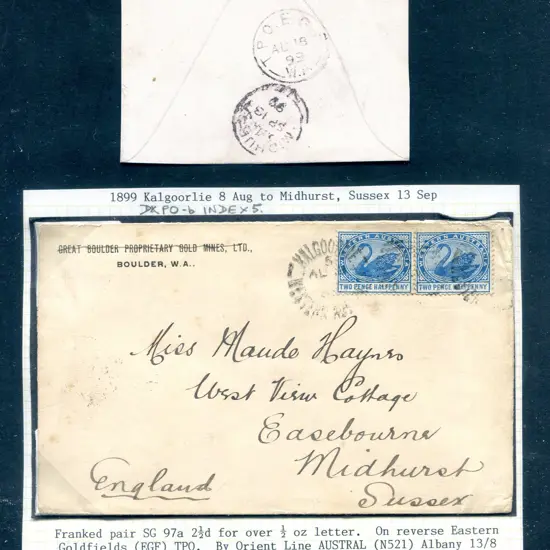 T.P.O. E.G.F.
AU 18
99
W.A.
MIDHURST
SP 13
99
1899 Kalgoorlie 8 Aug to Midhurst, Sussex 13 Sep
DKPO-b INDEX 5.
GREAT BOULDER PROPRIETARY GOLD MINES, LTD.,
BOULDER, W.A..
KALGOOR
WESTERN AUSTRALIA
TWO PENCE HALFPENNY
WESTERN AUSTRALIA
TWO PENCE HALFPENNY
Miss Maude Haynes
West View Cottage
Easebourne
Midhurst
Sussex
England
Franked pair SG 97a 2½d for over ½ oz letter. On reverse Eastern
Goldfields (EGF) TPO. By Orient Line AUSTRAL (N521) Albany 13/8